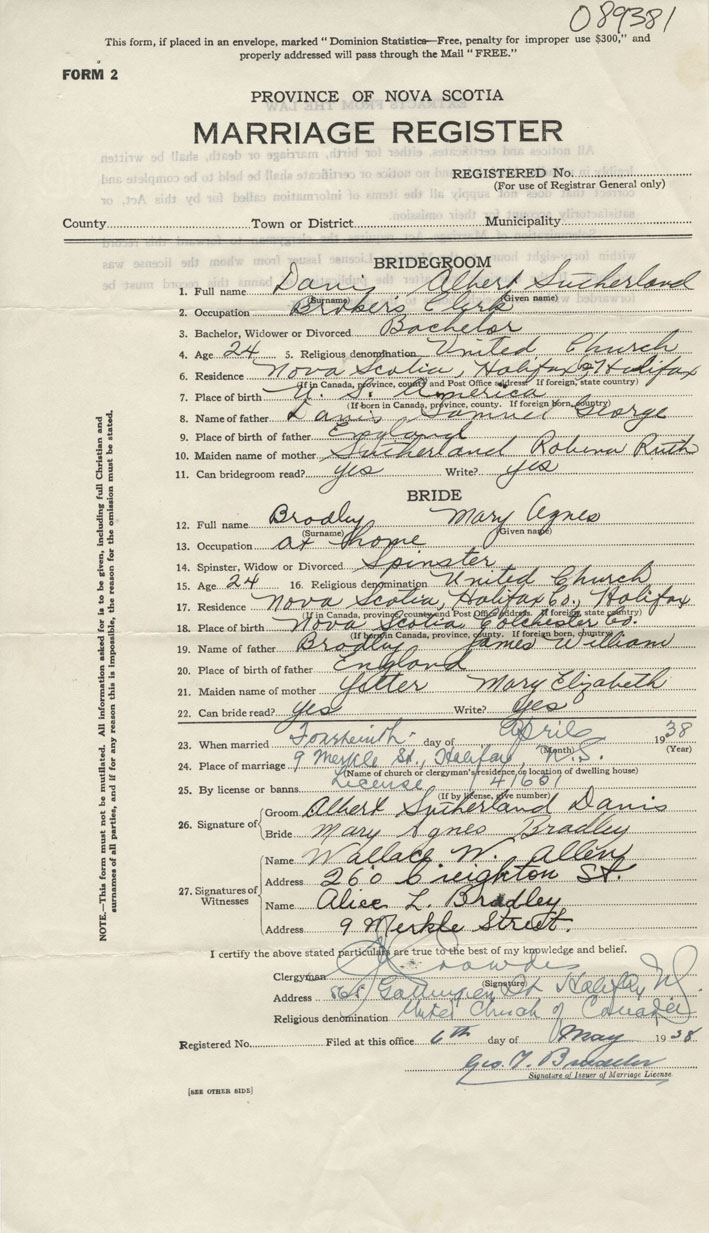 089381
This form, if placed in an envelope, marked "Dominion Statistics—Free, penalty for improper use $300," and
properly addressed will pass through the Mail "FREE."
FORM 2
PROVINCE OF NOVA SCOTIA
MARRIAGE REGISTER
REGISTERED No.
(For use of Registrar General only)
County Town or District Municipality
BRIDEGROOM
1. Full name Davis Albert Sutherland
(Surname) (Given name)
2. Occupation Brokers Clerk
3. Bachelor, Widower or Divorced Bachelor
4. Age 24 5. Religious denomination United Church
6. Residence Nova Scotia, Halifax Halifax
(If in Canada, province, county and Post Office address. If foreign, state country)
7. Place of birth U. S. America
(If born in Canada, province, county. If foreign born, country)
8. Name of father Davis Samuel George
9. Place of birth of father England
10. Maiden name of mother Sutherland Robena Ruth
11. Can bridegroom read? yes Write? yes
BRIDE
12. Full name Bradley Mary Agnes
(Surname) (Given name)
13. Occupation at home
14. Spinster, Widow or Divorced Spinster
15. Age 24 16. Religious denomination United Church
17. Residence Nova Scotia, Halifax Co., Halifax
(If in Canada, province, county and Post Office address. If foreign, state country)
18. Place of birth Nova Scotia Colchester Co.
(If born in Canada, province, county. If foreign born, country)
19. Name of father Bradley James William
20. Place of birth of father England
21. Maiden name of mother Mary Elizabeth
22. Can bride read? yes Write? yes
23. When married day of April 1938
(Month) (Year)
24. Place of marriage 9 Merkle St., Halifax, N.S.
(Name of church or clergyman's residence, or location of dwelling house)
25. By license or banns License
(If by license, give number)
26. Signature of Groom Albert Sutherland Davis
Bride Mary Agnes Bradley
27. Signatures of Witnesses
Name Wallace W. Allen
Address 260 Creighton St.
Name Alice L. Bradley
Address 9 Merkle Street.
I certify the above stated particulars are true to the best of my knowledge and belief.
Clergyman
(Signature)
Address St Halifax
Religious denomination United Church of Canada
Registered No. Filed at this office 6th day of May 1938
Geo. T.
Signature of Issuer of Marriage License
[SEE OTHER SIDE]
NOTE.—This form must not be mutilated. All information asked for is to be given, including full Christian and
surnames of all parties, and if for any reason this is impossible, the reason for the omission must be stated.